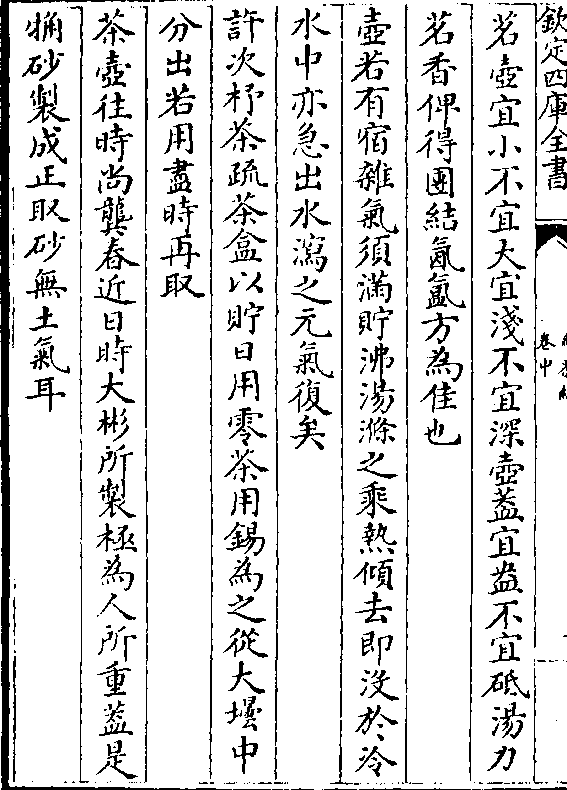 欽定四庫全書
卷中
茗壺宜小不宜大宜淺不宜深壺葢宜盎不宜砥湯力
茗香俾得團結氤氳方為佳也
壺若有宿雜氣須滿貯沸湯滌之乘熱傾去即沒於冷
水中亦急出水瀉之元氣復矣
許次杼茶疏茶盒以貯日用零茶用錫為之從大壜中
分出若用盡時再取
茶壺往時尚龔春近日時大彬所製極為人所重葢是
觕砂製成正取砂無土氣耳